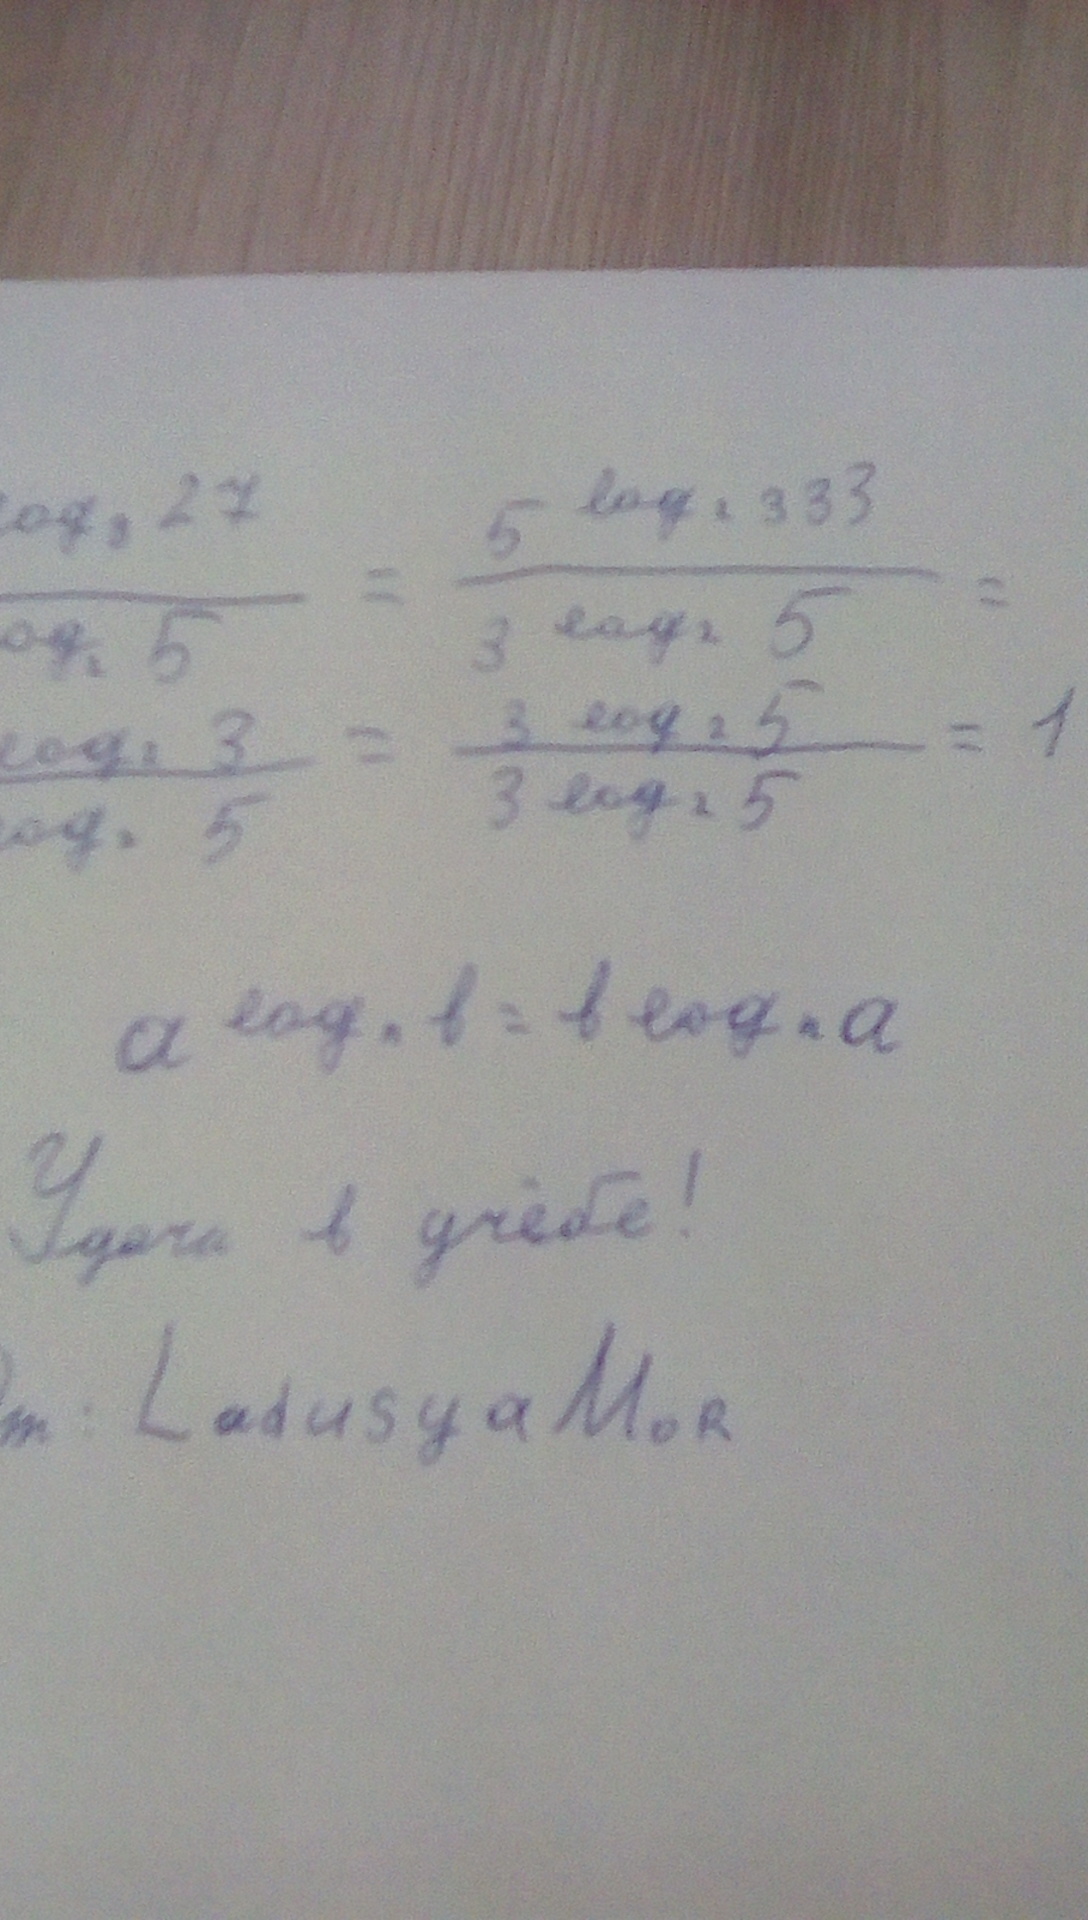 log₃ 27 = 5 log₂ 3³3 =
log₂ 5 3 log₂ 5
log₂ 3 = 3 log₂ 5 = 1
log₂ 5 3 log₂ 5
a log n b = b log n a
Удачи в учёбе!
От: LadusyaMoR